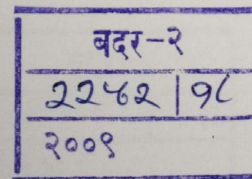 बदर-२
२२५२ | १८
२००९